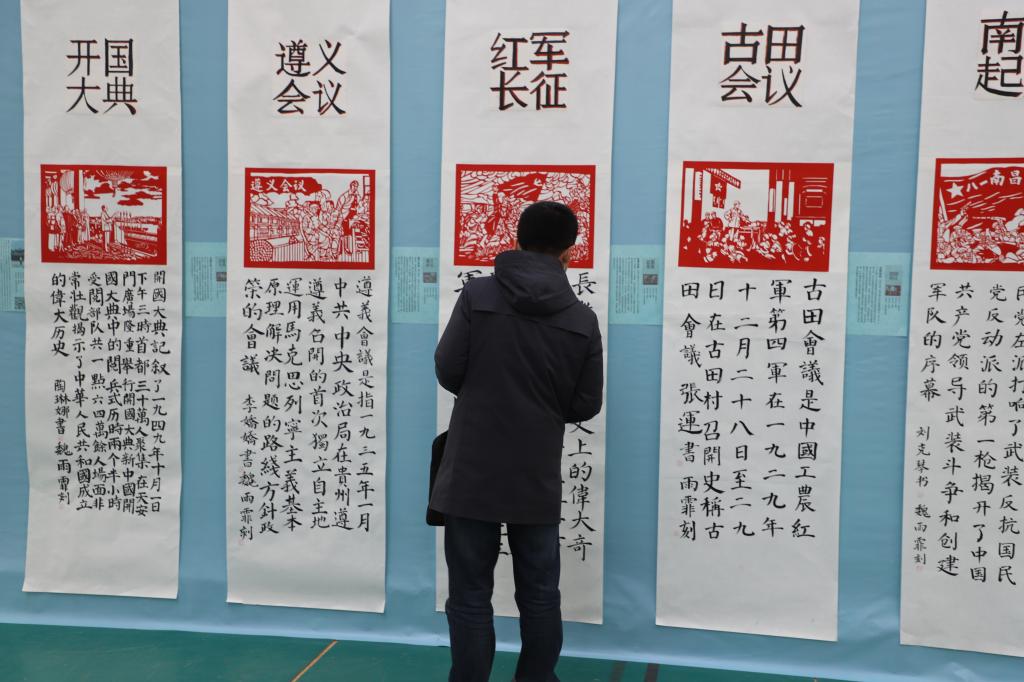 开国
大典
開國大典記叙了一九四九年十月一日
下午三時首都三十萬人聚集在天安
門廣場隆重舉行開國大典新中國開
國大典中的閱兵式历時两个半小時
受閱部队共一點六四萬餘人場面非
常壮觀揭示了中華人民共和國成立
的偉大历史 陶琳娜書 魏雨霏刻
遵义
会议
遵义会议
遵義會議是指一九三五年一月
中共中央政治局在貴州遵
遵義召開的首次獨立自主地
運用馬克思列寧主義基本
原理解决問題的路綫方針政
策的會議 李嬌嬌書 魏雨霏刻
红军
长征
長
上的偉大奇
軍
古田
会议
古田會議是中國工農紅
軍第四軍在一九二九年
十二月二十八日至二九
日在古田村召開史稱古
田會議 張運書 雨霏刻
南
起
八一南昌
民党左派打响了武装反抗国民
党反动派的第一枪揭开了中国
共产党领导武装斗争和创建
军队的序幕 刘克琴书 魏雨霏刻